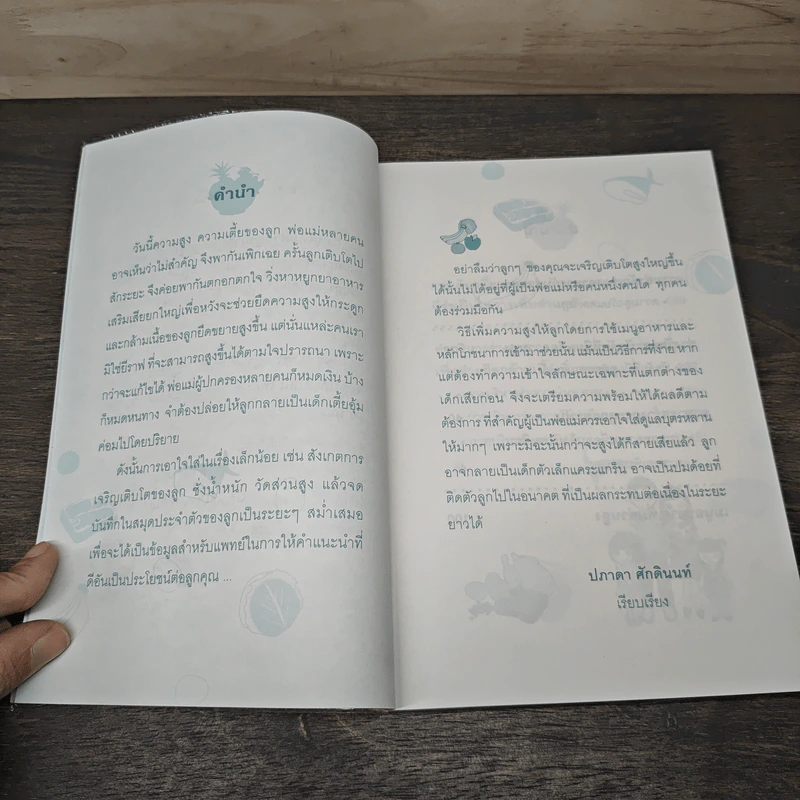 คำนำ
วันนี้ความสูง ความเตี้ยของลูก พ่อแม่หลายคน
อาจเห็นว่าไม่สำคัญ จึงพากันเพิกเฉย ครั้นลูกเติบโตไป
สักระยะ จึงค่อยพากันตกอกตกใจ วิ่งหาหยูกยาอาหาร
เสริมเสียยกใหญ่เพื่อหวังจะช่วยยืดความสูงให้กระดูก
และกล้ามเนื้อของลูกยืดขยายสูงขึ้น แต่นั่นแหละคนเรา
มิใช่ยีราฟ ที่จะสามารถสูงขึ้นได้ตามใจปรารถนา เพราะ
กว่าจะแก้ไขได้ พ่อแม่ผู้ปกครองหลายคนก็หมดเงิน บ้าง
ก็หมดหนทาง จำต้องปล่อยให้ลูกกลายเป็นเด็กเตี้ยอุ้ม
ค่อมไปโดยปริยาย
ดังนั้นการเอาใจใส่ในเรื่องเล็กน้อย เช่น สังเกตการ
เจริญเติบโตของลูก ชั่งน้ำหนัก วัดส่วนสูง แล้วจด
บันทึกในสมุดประจำตัวของลูกเป็นระยะๆ สม่ำเสมอ
เพื่อจะได้เป็นข้อมูลสำหรับแพทย์ในการให้คำแนะนำที่
ดีอันเป็นประโยชน์ต่อลูกคุณ ...
อย่าลืมว่าลูกๆ ของคุณจะเจริญเติบโตสูงใหญ่ขึ้น
ได้นั้นไม่ได้อยู่ที่ผู้เป็นพ่อแม่หรือคนหนึ่งคนใด ทุกคน
ต้องร่วมมือกัน
วิธีเพิ่มความสูงให้ลูกโดยการใช้เมนูอาหารและ
หลักโภชนาการเข้ามาช่วยนั้น แม้นเป็นวิธีการที่ง่าย หาก
แต่ต้องทำความเข้าใจลักษณะเฉพาะที่แตกต่างของ
เด็กเสียก่อน จึงจะเตรียมความพร้อมให้ได้ผลดีตาม
ต้องการ ที่สำคัญผู้เป็นพ่อแม่ควรเอาใจใส่ดูแลบุตรหลาน
ให้มากๆ เพราะมิฉะนั้นกว่าจะสูงได้ก็สายเสียแล้ว ลูก
อาจกลายเป็นเด็กตัวเล็กแคระแกร็น อาจเป็นปมด้อยที่
ติดตัวลูกไปในอนาคต ที่เป็นผลกระทบต่อเนื่องในระยะ
ยาวได้
ปภาดา ศักดินนท์
เรียบเรียง